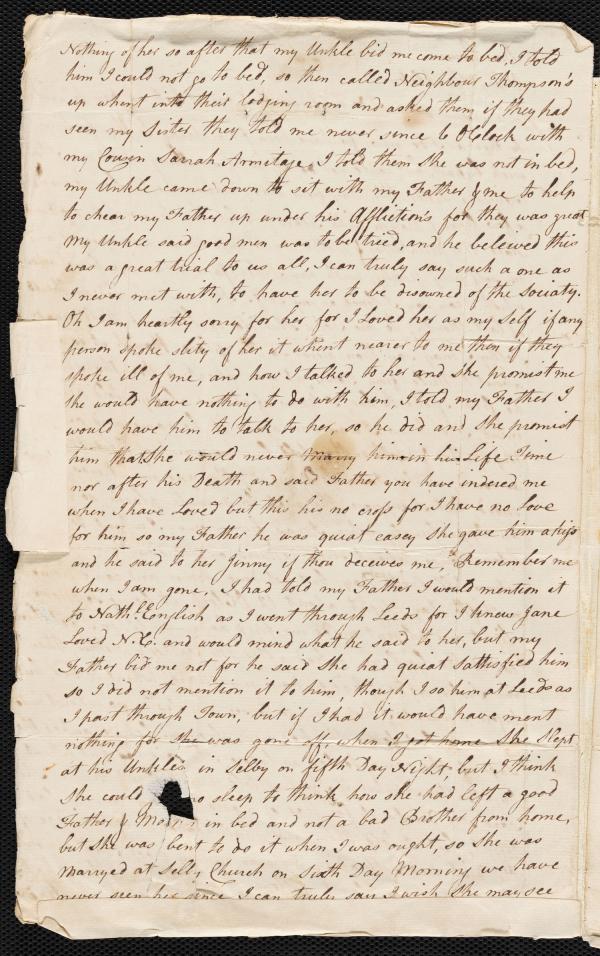 Nothing of her so after that my Unkle bid me come to bed, I told
him I could not go to bed, so then called Neighbour Thompson's
up whent into their lodging room and asked them if they had
seen my Sister they told me never since 6 O'Clock with
my Cousin Sarrah Armitage I told them she was not in bed,
my Unkle came down to sit with my Father & me to help
to chear my Father up under his Affliction's for they was great
My Unkle said good men was to be tried, and he beleived this
was a great trial to us all, I can truly say such a one as
I never met with, to have her to be disowned of the Sociaty.
Oh I am heartly sorry for her for I Loved her as my Self if any
person spoke slity of her it whent nearer to me then if they
spoke ill of me, and how I talked to her and she promest me
she would have nothing to do with him, I told my Father I
would have him to talk to her, so he did and she promist
him that she would never Marry him in his Life Time
nor after his Death and said Father you have indered me
when I have Loved but this his no cross for I have no Love
for him so my Father he was quiat casey she gave him a kiss
and he said to her Jinny if thou deceives me, Remember me
when I am gone, I had told my Father I would mention it
to Nath.l English as I went through Leeds for I knew Jane
Loved N.E. and would mind what he said to her, but my
Father bid me not for he said she had quiat Sattisfied him
so I did not mention it to him, though I so him at Leeds as
I past through Town, but if I had it would have ment
nothing for she was gone off, when I got home She Slept
at his Unkle's in Selby on fifth Day Night but I think
She could no sleep to think how she had left a good
Father & Mother in bed and not a bad Brother from home,
but she was bent to do it when I was ought, so she was
Marryed at Selby Church on Sixth Day Morning we have
never seen her since I can truly say I wish she may see